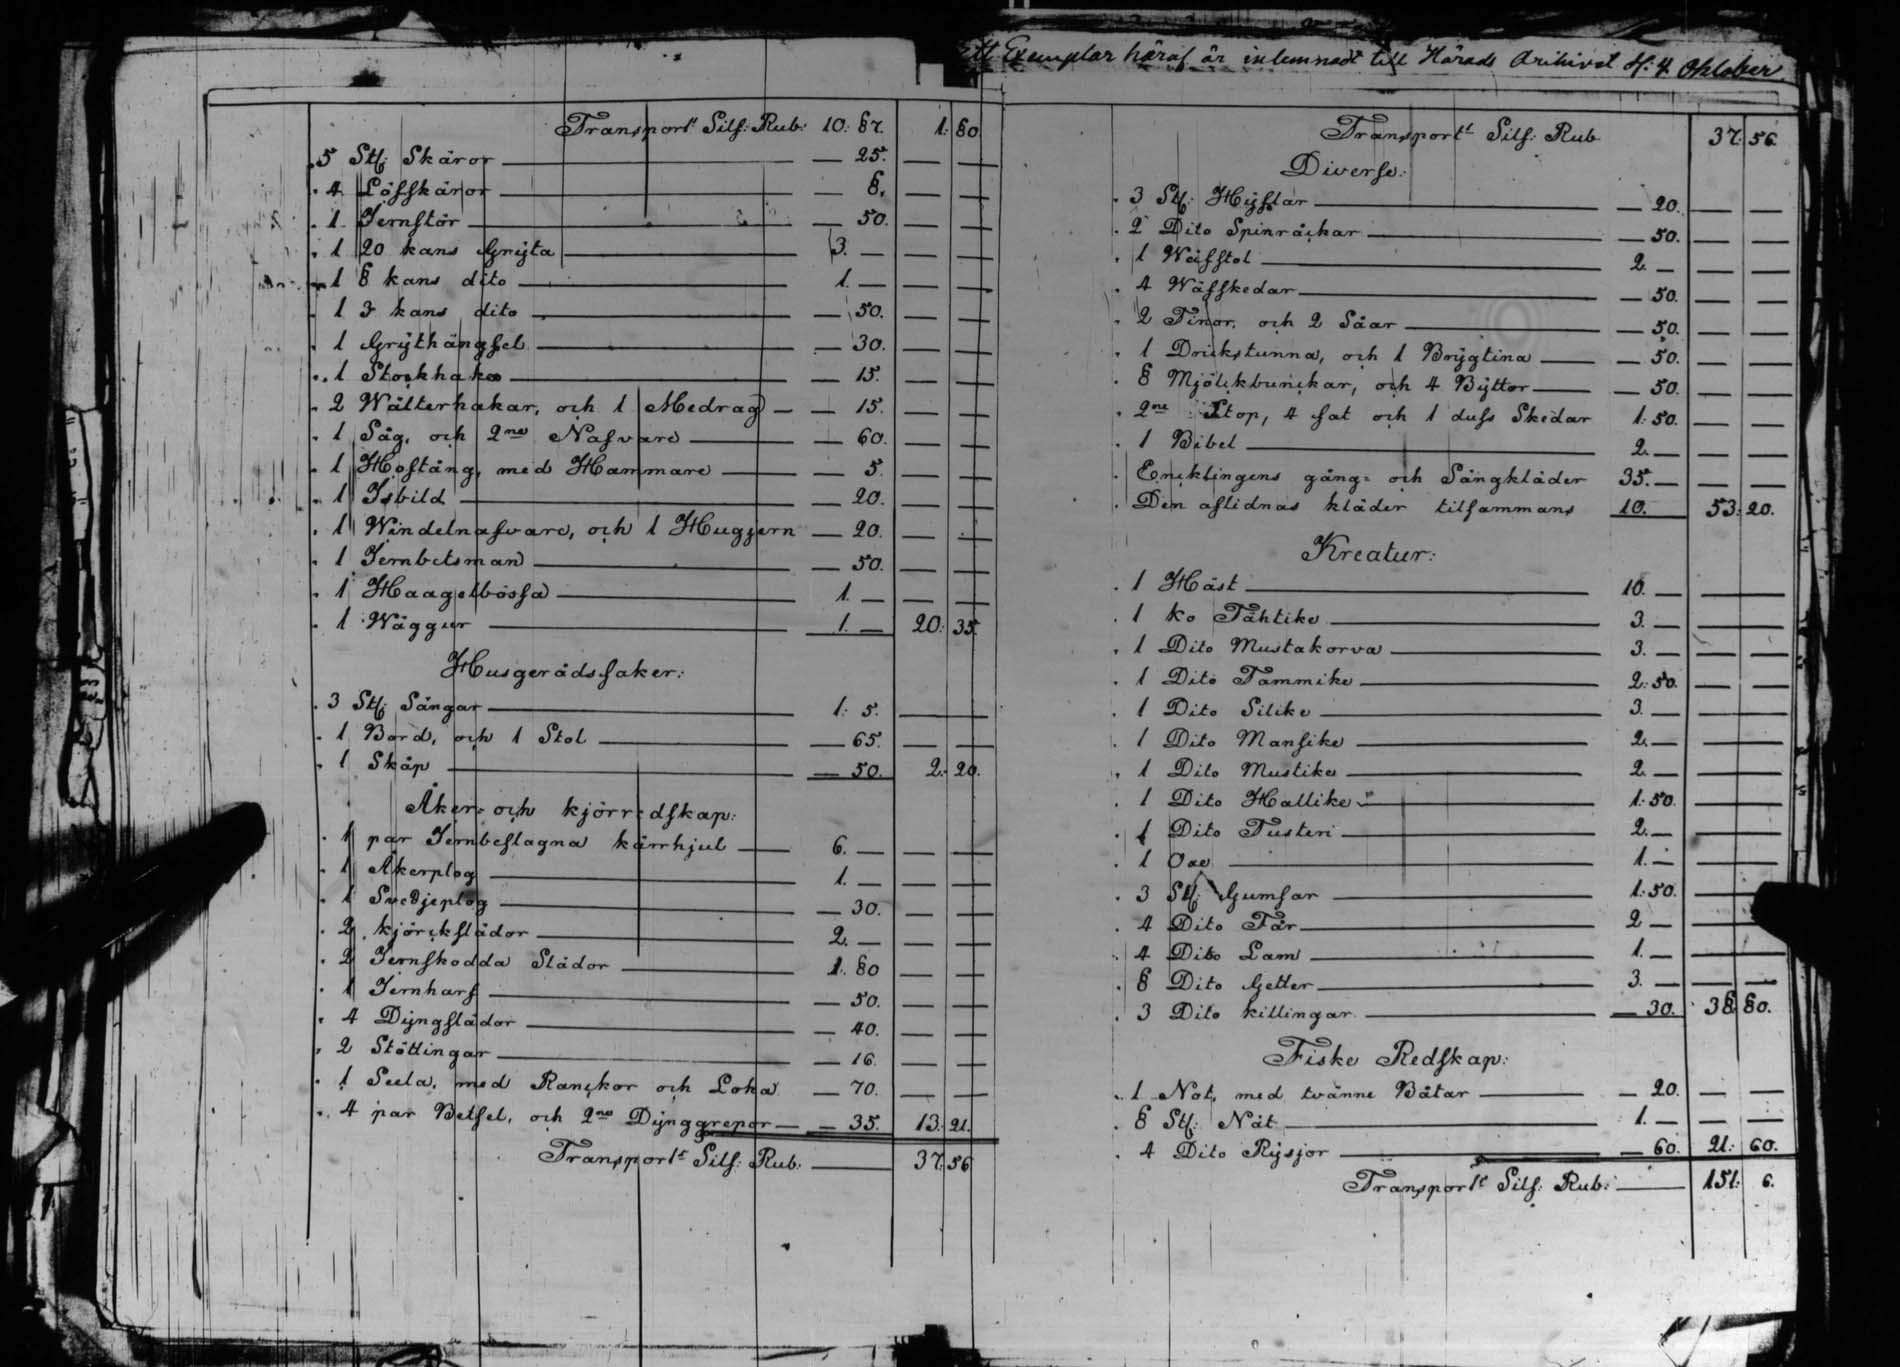 Ett Exemplar häraf är inlemnadt till Härads Arihivet d. 4 Oktober
Transport Silf: Rub: 10: 87. 1: 80.
5 St: Skäror — 25. — —
4 Löfskäror — 8. — —
1 Jernstör — 50. — —
1 20 kans Gryta 3. — — —
1 8 kans dito 1. — — —
1 3 kans dito — 50. — —
1 Grythängsel — 30. — —
1 Stockhake — 15. — —
2 Wälterhakar, och 1 Medrag — 15. — —
1 Såg, och 2ne Nafvare — 60. — —
1 Hoftång, med Hammare — 5. — —
1 Isbild — 20. — —
1 Windelnafvare, och 1 Huggjern — 20. — —
1 Jernbetsman — 50. — —
1 Haagelbössa 1. — — —
1 Wäggur 1. — 20: 35.
Husgerådssaker:
3 St: Sängar 1: 5. — —
1 Bord, och 1 Stol — 65. — —
1 Skåp — 50. 2: 20.
Åker- och kjörredskap:
1 par Jernbeslagna kärrhjul 6. — — —
1 Åkerplog 1. — — —
1 Svedjeplog — 30. — —
2 kjörckslädor 2. — — —
2 Jernskodda Slädor 1: 80 — —
1 Jernharf — 50. — —
4 Dyngslädor — 40. — —
2 Stöttingar — 16. — —
1 Seela, med Ranckor och Loka — 70. — —
4 par Betsel, och 2ne Dynggrepor — 35. 13: 21.
Transport Silf: Rub: 37: 56
Transport Silf: Rub 37: 56.
Diverse:
3 St: Hyflar — 20. — —
2 Dito Spinråckar — 50. — —
1 Wäfstol 2. — — —
4 Wäfskedar — 50. — —
2 Tinor, och 2 Såar — 50. — —
1 Drickstunna, och 1 Brygtina — 50. — —
8 Mjölckbunckar, och 4 Byttor — 50. — —
2ne Stop, 4 fat och 1 duss Skedar 1: 50. — —
1 Bibel 2. — — —
Encklingens gång- och Sängkläder 35. — — —
Den aflidnas kläder tilsammans 10. 53: 20.
Kreatur:
1 Häst 10. — —
1 ko Tähtike 3. — —
1 Dito Mustakorva 3. — — —
1 Dito Tammike 2: 50. — —
1 Dito Silike 3. — —
1 Dito Mansike 2. — —
1 Dito Mustike 2. — —
1 Dito Hallike 1: 50. —
1 Dito Tusteri 2. — —
1 Oxe 1. — —
3 St: Gumsar 1: 50. —
4 Dito Får 2 — —
4 Dito Lam 1. — —
8 Dito Getter 3. — — —
3 Dito killingar — 30. 38: 80.
Fiske Redskap:
1 Not, med tvänne Båtar — 20. — —
8 St: Nät 1. — — —
4 Dito Rysjor — 60. 21: 60.
Transport Silf: Rub: 151: 6.